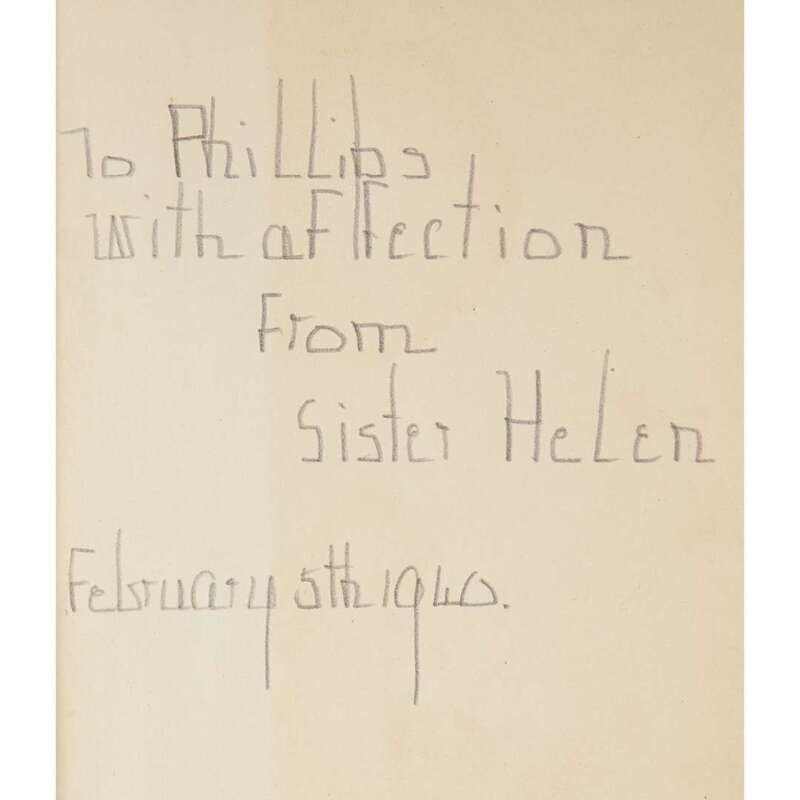 To Phillips
with affection
From
Sister Helen
February 5th 1940.